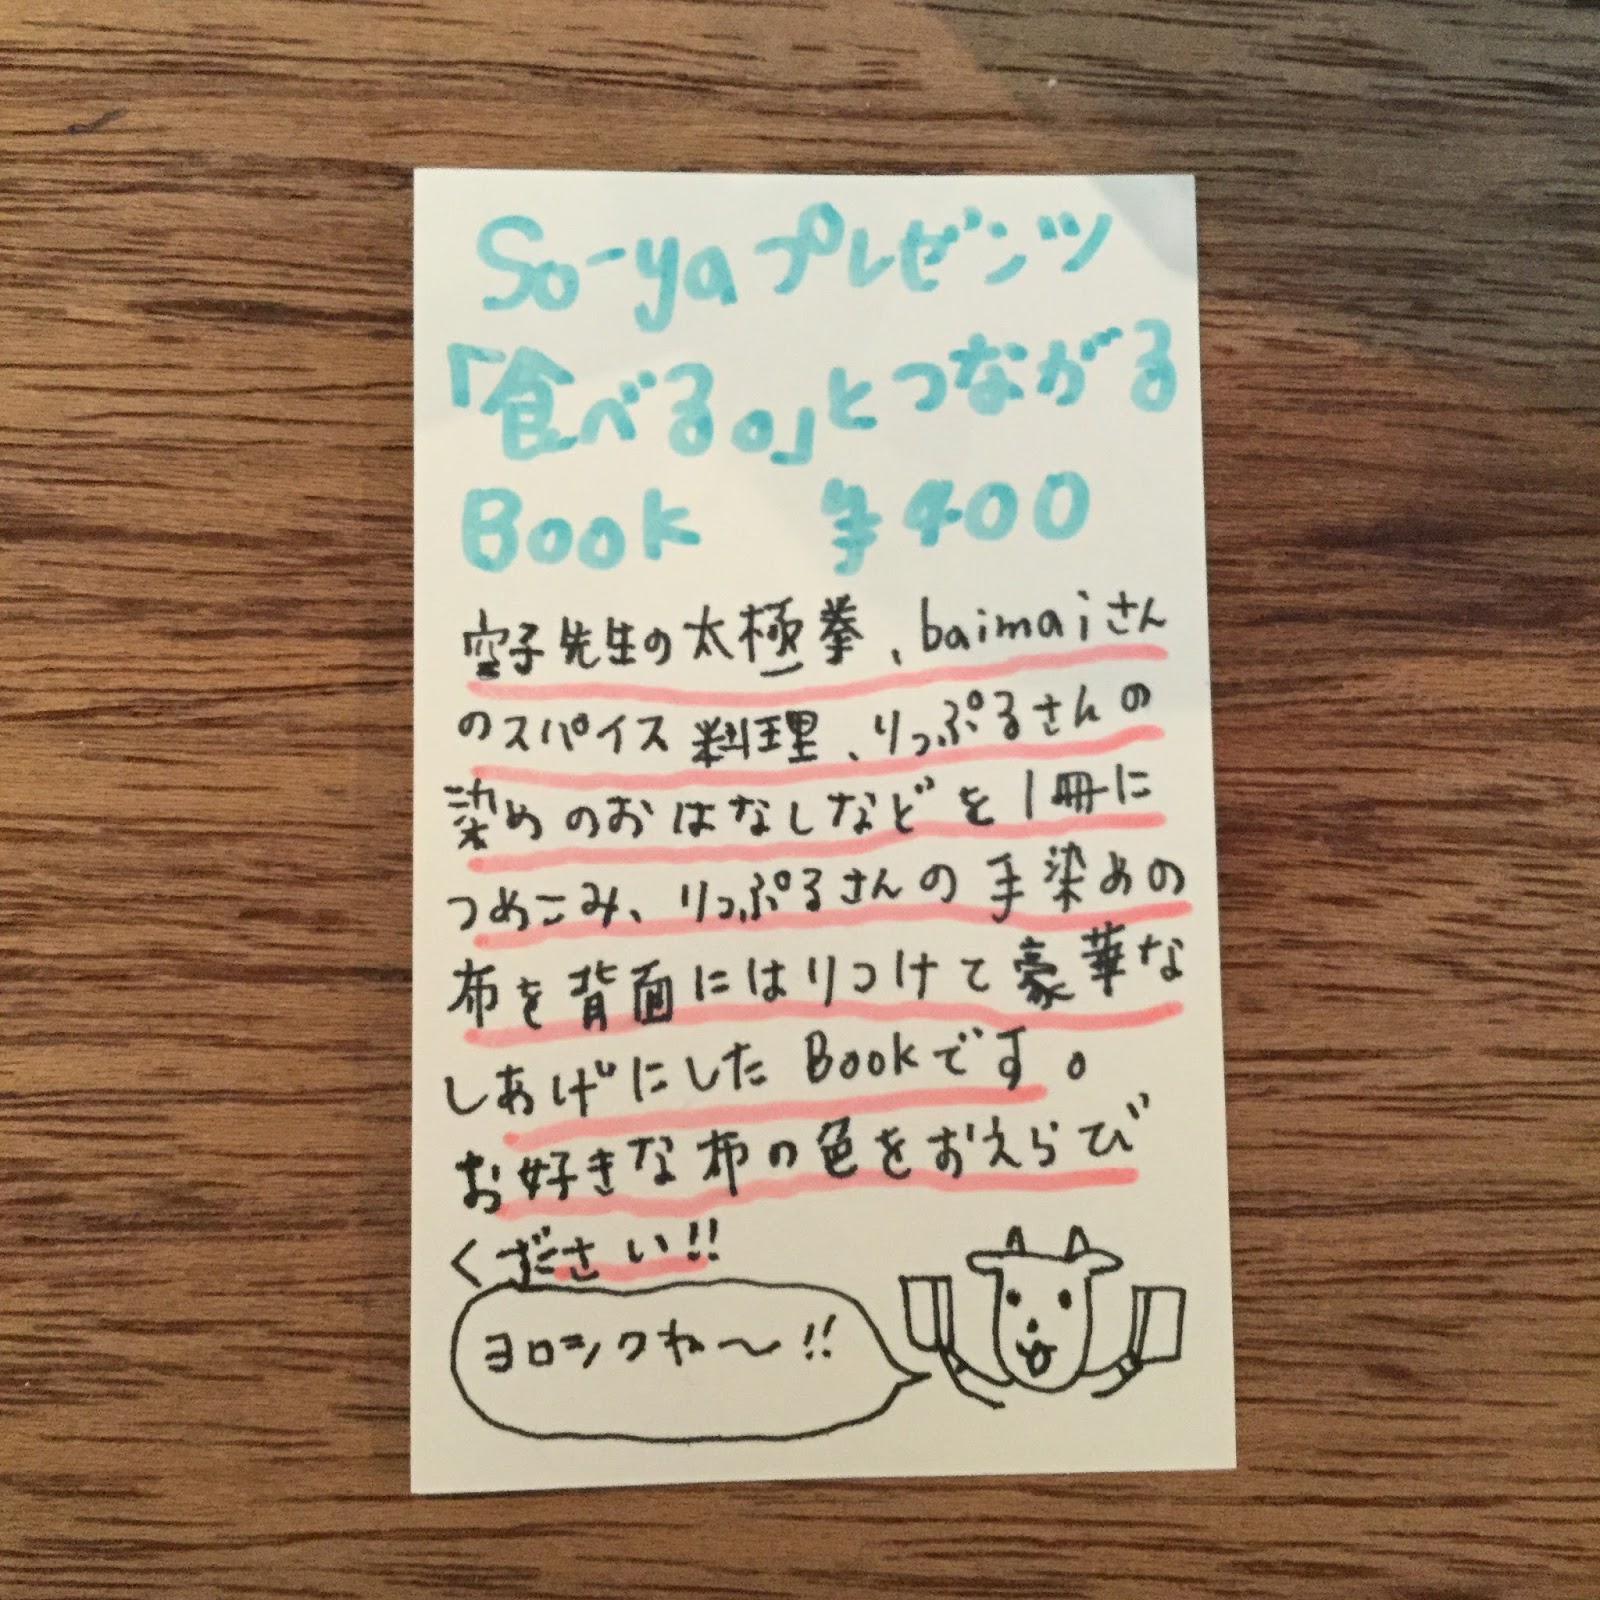 So-yaプレゼンツ
「食べる。」とつながる
Book ¥400
空子先生の太極拳、baimaiさん
のスパイス料理、りっぷるさんの
染めのおはなしなどを1冊に
つめこみ、りっぷるさんの手染めの
布を背面にはりつけて豪華な
しあげにしたBookです。
お好きな布の色をおえらび
ください!!
ヨロシクね〜!!